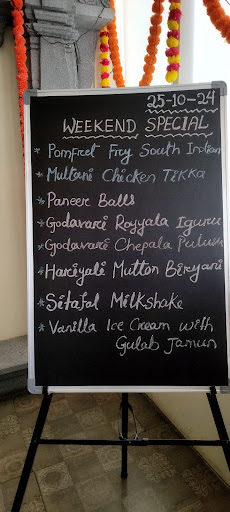 25-10-24
WEEKEND SPECIAL
* Pomfret Fry South Indian
* Multani Chicken Tikka
* Paneer Balls
* Godavari Royyala Iguru
* Godavari Chepala Pulusu
* Hariyali Mutton Biryani
* Sitafal Milkshake
* Vanilla Ice Cream with
Gulab Jamun